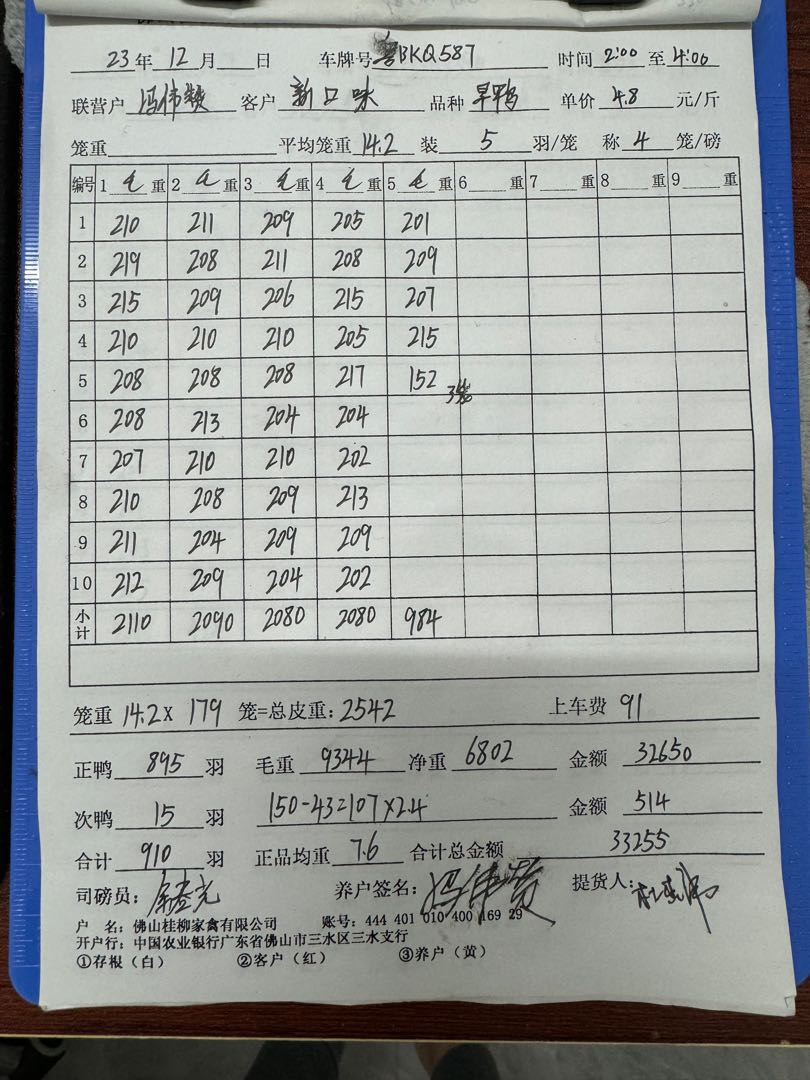 23年12月 日 车牌号 粤BKQ587 时间 2:00 至 4:00
联营户 冯伟赞 客户 新口味 品种 旱鸭 单价 4.8 元/斤
笼重 平均笼重 14.2 装 5 羽/笼 称 4 笼/磅
编号 1 毛 重 2 毛 重 3 毛 重 4 毛 重 5 毛 重 6 重 7 重 8 重 9 重
1 210 211 209 205 201
2 219 208 211 208 209
3 215 209 206 215 207
4 210 210 210 205 215
5 208 208 208 217 152 3笼
6 208 213 204 204
7 207 210 210 202
8 210 208 209 213
9 211 204 209 209
10 212 209 204 202
小计 2110 2090 2080 2080 984
笼重 14.2 X 179 笼=总皮重:2542 上车费 91
正鸭 895 羽 毛重 9344 净重 6802 金额 32650
次鸭 15 羽 150-43=107×2.4 金额 514
合计 910 羽 正品均重 7.6 合计总金额 33255
司磅员: 养户签名:冯伟赞 提货人:
户 名:佛山桂柳家禽有限公司 账号:444 401 010 400 169 29
开户行:中国农业银行广东省佛山市三水区三水支行
①存根(白) ②客户(红) ③养户(黄)